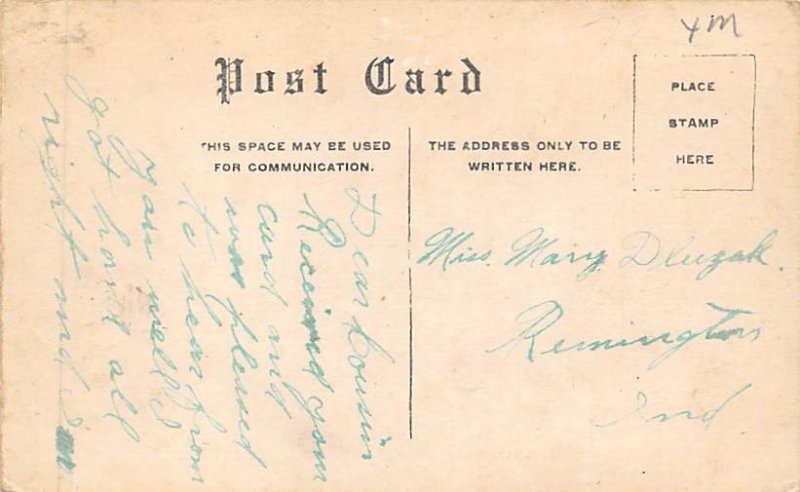 4M
Post Card
THIS SPACE MAY BE USED
FOR COMMUNICATION.
THE ADDRESS ONLY TO BE
WRITTEN HERE.
PLACE
STAMP
HERE
Dear Cousin
Received your
card and
was pleased
to hear from
you well I
got home all
right and I
Miss. Mary Dluzak.
Remington
Ind.